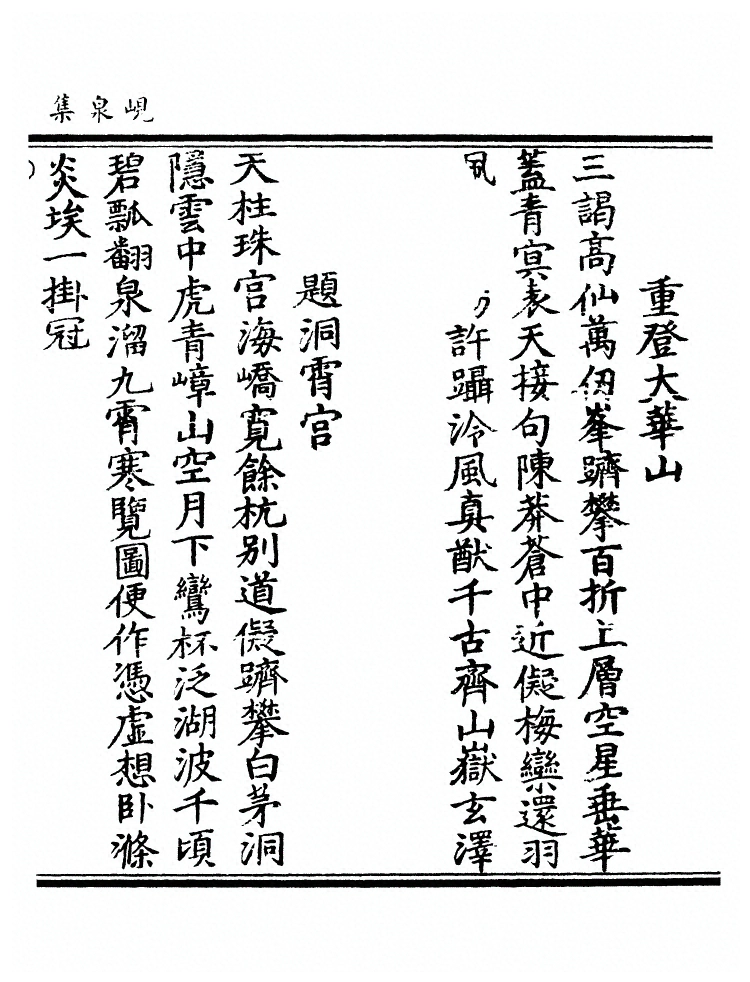 峴泉集
重登大華山
三謁高仙萬仞峯躋攀百折上層空星垂華
蓋青㝠表天接句陳莽蒼中近儗梅欒還羽
許躡泠風真猷千古齊山嶽玄澤
題洞霄宫
天柱珠宫海嶠寛餘杭别道儗躋攀白茅洞
隱雲中虎青嶂山空月下鸞杯泛湖波千頃
碧瓢翻泉溜九霄寒覽圖便作憑虚想卧滌
炎埃一掛冠